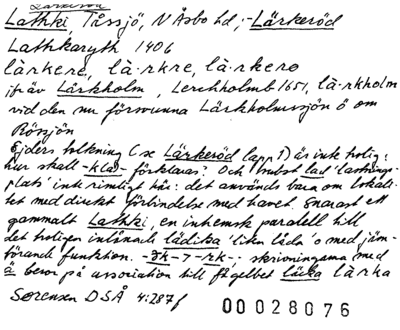 Larkeröd
Lathki, Tåssjö, N Åsbo hd, – Lärkeröd
Lathkaryth 1406
làrkere, là·rkre, là·rkerø
jfr äv Lärkholm, Lerchholmb 1651, là·rkholm
vid den nu försvunna Lärkholmssjön ö om
Rössjön
Ejders tolkning (se Lärkeröd lapp 1) är inte trolig:
hur skall -k(la)- förklaras? Och substl lad 'lastnings-
plats' inte rimligt här: det används bara om lokali-
tet med direkt förbindelse med havet. Snarast ett
gammalt Lathki, en inhemsk parallell till
det troligen inlånade lädika 'liten låda' o med jäm-
förande funktion. -ðk- > -rk-; skrivningarna med
ä beror på association till fågelbet lärka lärka
Sørensen DSÅ 4:287f
00028076